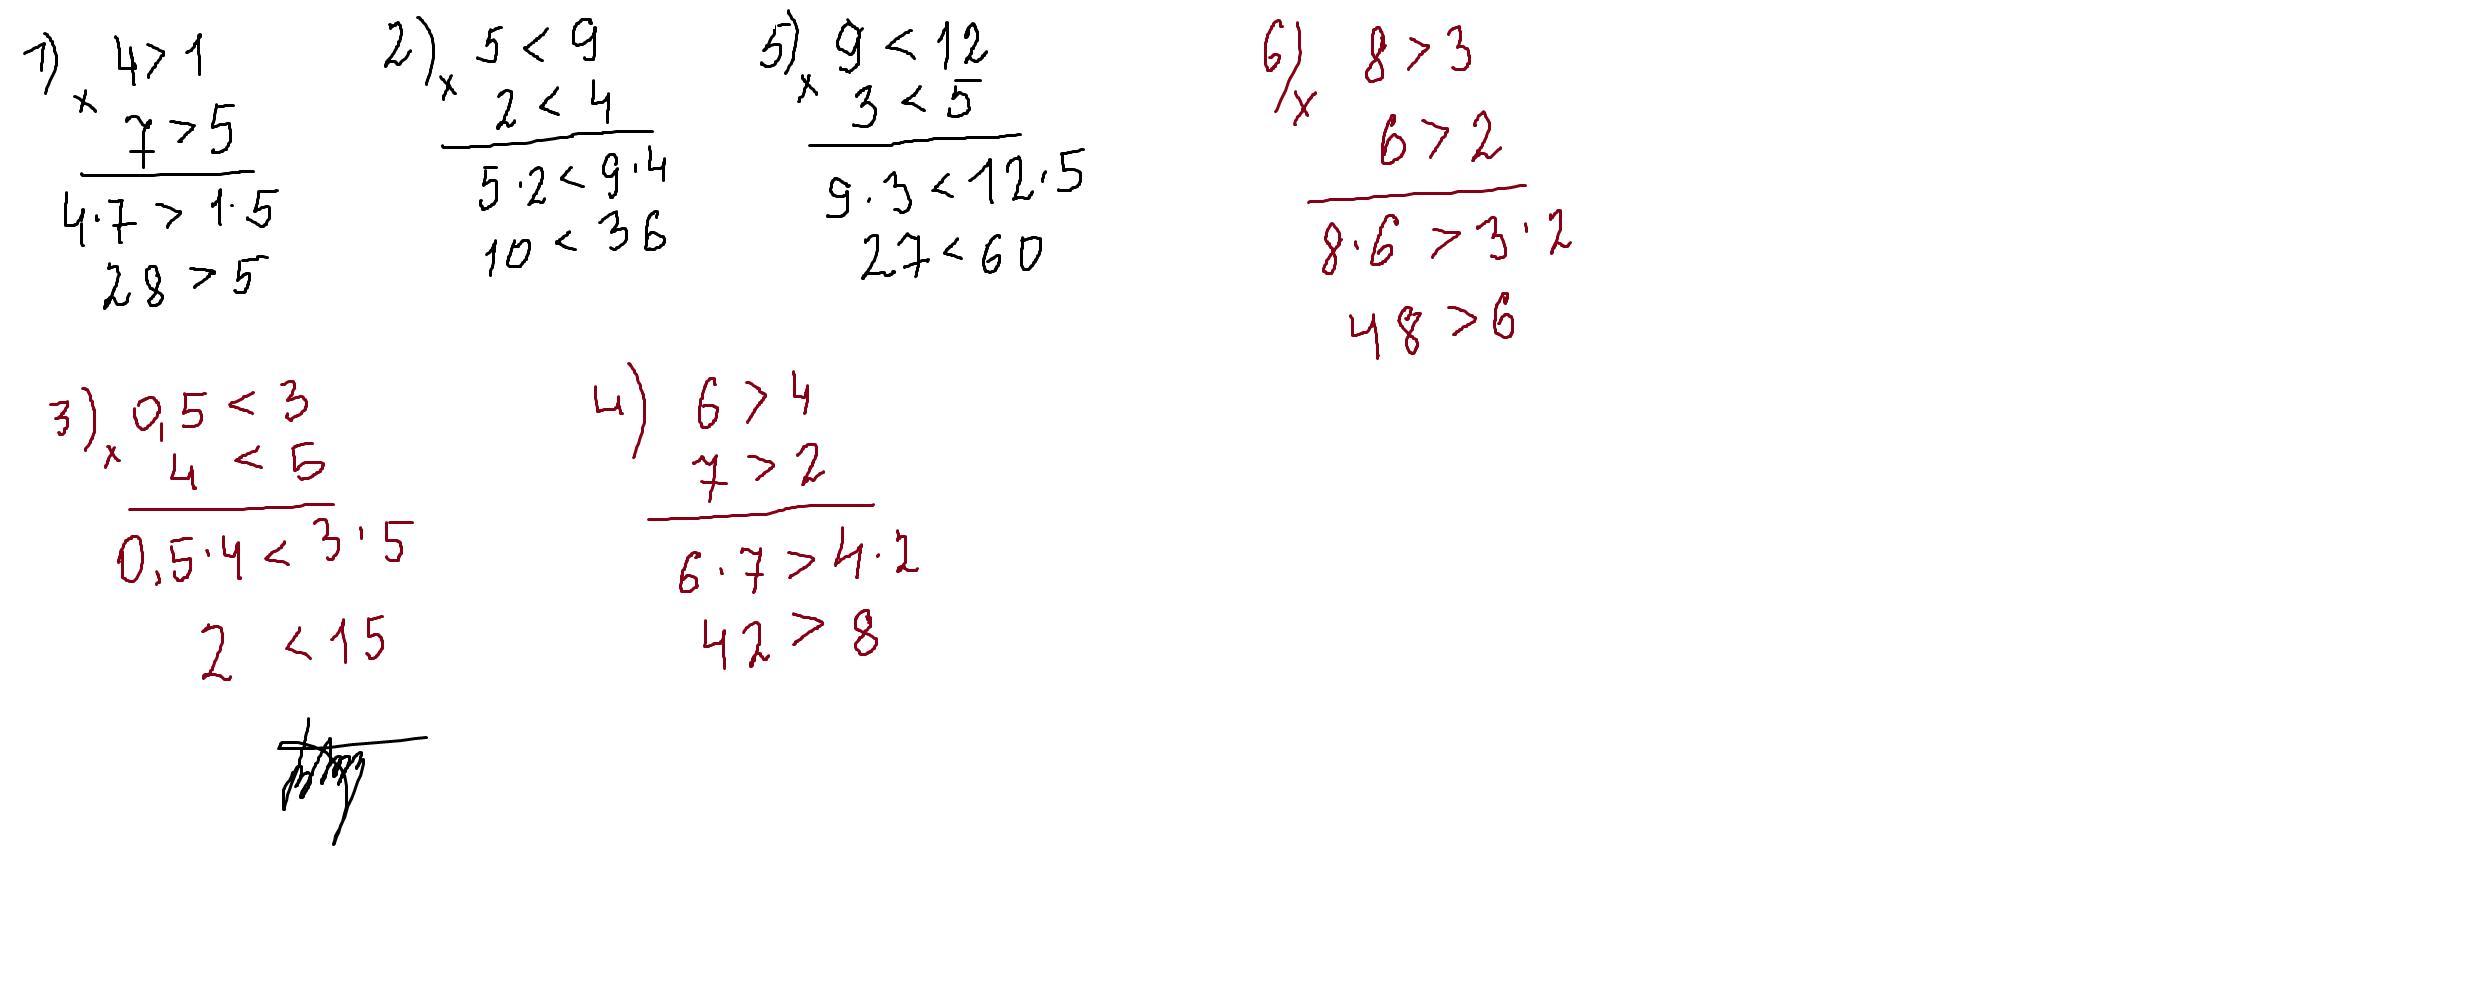 1) 4 > 1
x
7 > 5
4·7 > 1·5
28 > 5
2) 5 < 9
x
2 < 4
5·2 < 9·4
10 < 36
5) 9 < 12
x
3 < 5
9·3 < 12·5
27 < 60
6) 8 > 3
x
6 > 2
8·6 > 3·2
48 > 6
3) 0,5 < 3
x
4 < 5
0,5·4 < 3·5
2 < 15
4) 6 > 4
7 > 2
6·7 > 4·2
42 > 8